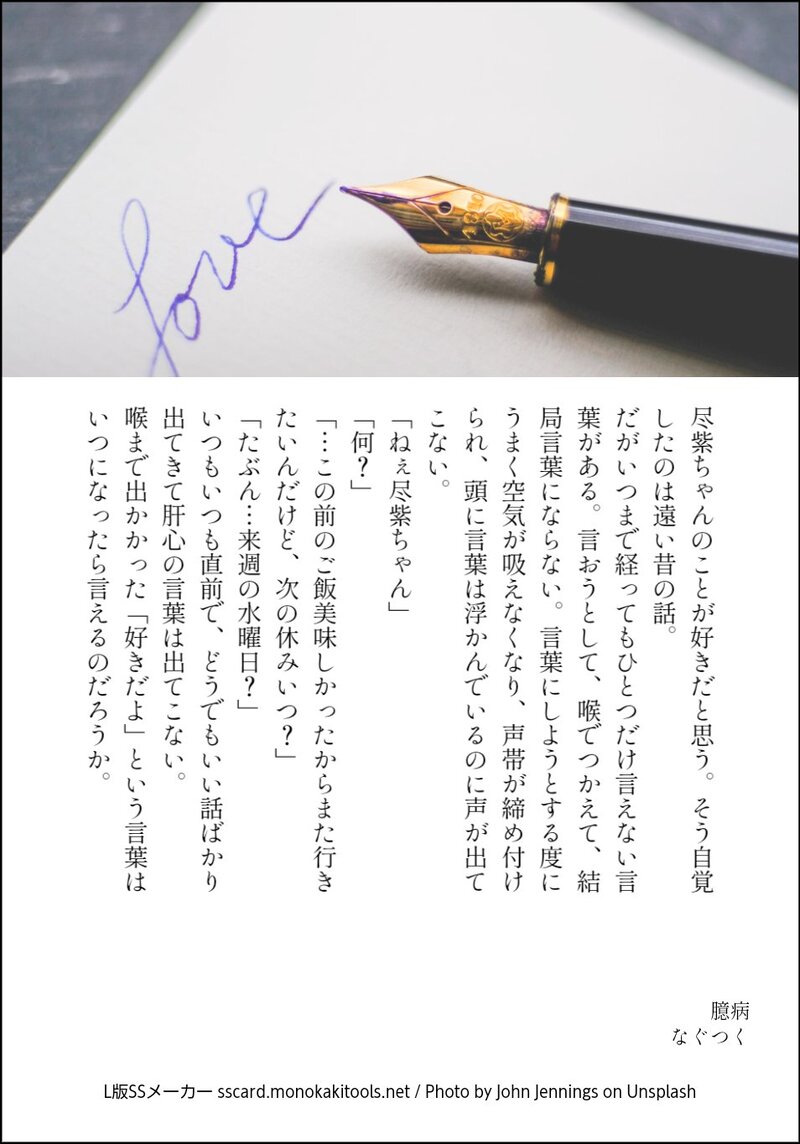 love
1810
尽紫ちゃんのことが好きだと思う。そう自覚
したのは遠い昔の話。
だがいつまで経ってもひとつだけ言えない言
葉がある。言おうとして、喉でつかえて、結
局言葉にならない。言葉にしようとする度に
うまく空気が吸えなくなり、声帯が締め付け
られ、頭に言葉は浮かんでいるのに声が出て
こない。
「ねぇ尽紫ちゃん」
「何？」
「…この前のご飯美味しかったからまた行き
たいんだけど、次の休みいつ？」
「たぶん…来週の水曜日？」
いつもいつも直前で、どうでもいい話ばかり
出てきて肝心の言葉は出てこない。
喉まで出かかった「好きだよ」という言葉は
いつになったら言えるのだろうか。
臆病
なぐつく
L版SSメーカー sscard.monokakitools.net / Photo by John Jennings on Unsplash